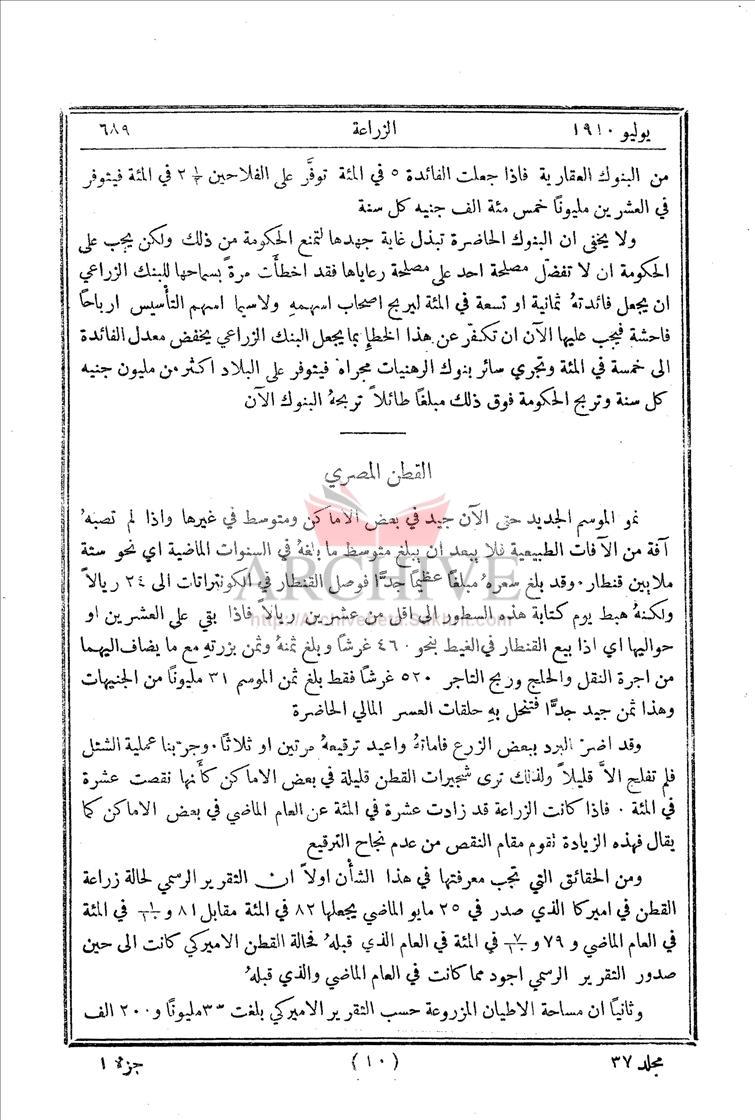 يوليو ١٩١٠ الزراعة ٦٨٩
من البنوك العقارية فاذا جعلت الفائدة ٥ في المئة توفَّر على الفلاحين ½ ٢ في المئة فيتوفر
في العشرين مليونًا خمس مئة الف جنيه كل سنة
ولا يخفى ان البنوك الحاضرة تبذل غاية جهدها لتمنع الحكومة من ذلك ولكن يجب على
الحكومة ان لا تفضل مصلحة احد على مصلحة رعاياها فقد اخطأَت مرةً بسماحها للبنك الزراعي
ان يجعل فائدتهُ ثمانية او تسعة في المئة ليربح اصحاب اسهمهِ ولاسيما اسهم التأسيس ارباحًا
فاحشة فيجب عليها الآن ان تكفّر عن هذا الخطإِ بما يجعل البنك الزراعي يخفض معدل الفائدة
الى خمسة في المئة وتجري سائر بنوك الرهنيات مجراه فيتوفر على البلاد اكثر من مليون جنيه
كل سنة وتربح الحكومة فوق ذلك مبلغًا طائلاً تربحهُ البنوك الآن
القطن المصري
نمو الموسم الجديد حتى الآن جيد في بعض الاماكن ومتوسط في غيرها واذا لم تصبهُ
آفة من الآفات الطبيعية فلا يبعد ان يبلغ متوسط ما بلغهُ في السنوات الماضية اي نحو ستة
ملايين قنطار. وقد بلغ سعرهُ مبلغًا عظيمًا جدًّا فوصل القنطار في الكونتراتات الى ٢٤ ريالاً
ولكنهُ هبط يوم كتابة هذه السطور الى اقل من عشرين ريالاً فاذا بقي على العشرين او
حواليها اي اذا بيع القنطار في الغيط بنحو ٤٦٠ غرشًا وبلغ ثمنهُ وثمن بزرتهِ مع ما يضاف اليهما
من اجرة النقل والحلج وربح التاجر ٥٢٠ غرشًا فقط بلغ ثمن الموسم ٣١ مليونًا من الجنيهات
وهذا ثمن جيد جدًّا فتنحل بهِ حلقات العسر المالي الحاضرة
وقد اضرَّ البرد ببعض الزرع فاماتهُ واعيد ترقيعهُ مرتين او ثلاثًا. وجربنا عملية الشتل
فلم تفلح الاَّ قليلاً ولذلك ترى شجيرات القطن قليلة في بعض الاماكن كأَنها نقصت عشرة
في المئة. فاذا كانت الزراعة قد زادت عشرة في المئة عن العام الماضي في بعض الاماكن كما
يقال فهذه الزيادة تقوم مقام النقص من عدم نجاح الترقيع
ومن الحقائق التي تجب معرفتها في هذا الشأن اولاً ان التقرير الرسمي لحالة زراعة
القطن في اميركا الذي صدر في ٢٥ مايو الماضي يجعلها ٨٢ في المئة مقابل ٨١ و في المئة
في العام الماضي و ٧٩ و في المئة في العام الذي قبلهُ فحالة القطن الاميركي كانت الى حين
صدور التقرير الرسمي اجود مما كانت في العام الماضي والذي قبلهُ
وثانيًا ان مساحة الاطيان المزروعة حسب التقرير الاميركي بلغت ٣٣ مليونًا و ٢٠٠ الف
مجلد ٣٧ (١٠) جزء ١
ARCHIVE